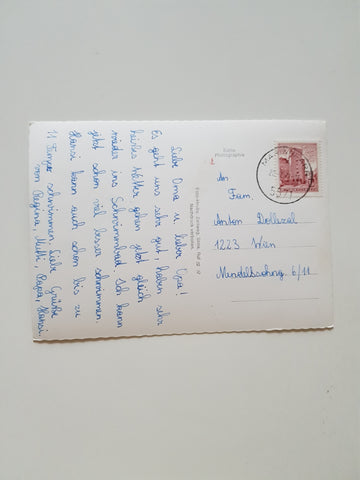 Liebe Oma u. lieber Opa!
Es geht uns sehr gut, haben sehr
heißes Wetter gehen jetzt gleich
wieder ins Schwimmbad. Ich kann
jetzt schon viel besser schwimmen.
Hansi kann auch schon bis zu
11 Tempo schwimmen. Liebe Grüße
von Regina, Mutti, Papa, Hansi.
Echte
Photographie
An
Fam.
Anton Dollezal
1223 Wien
Mendelssohng 6/11